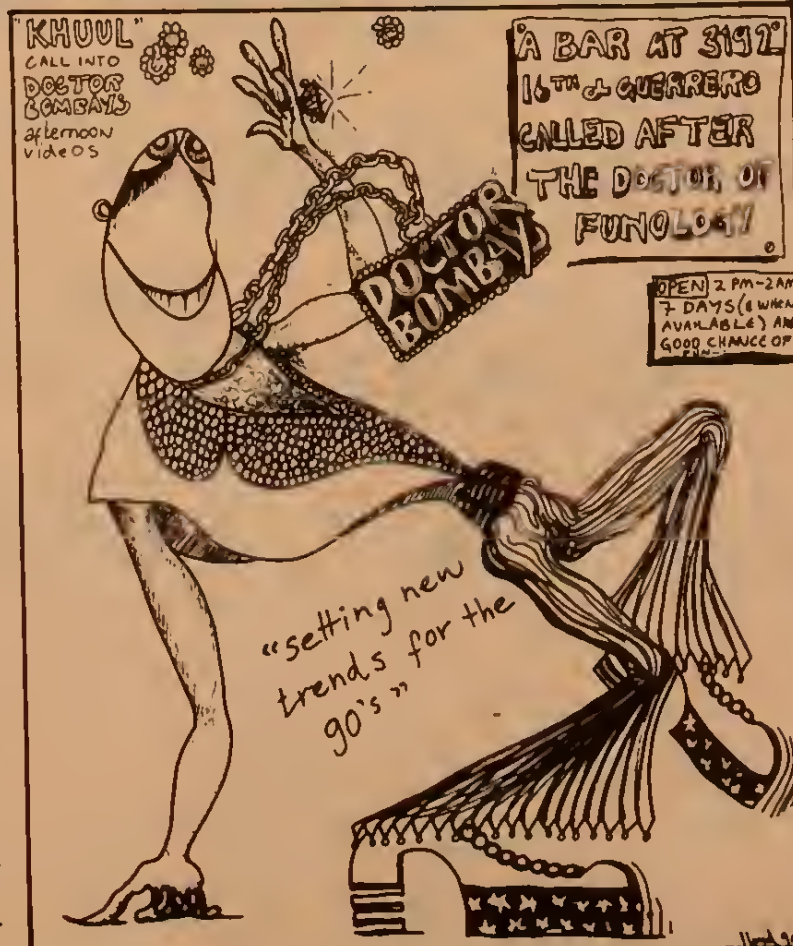 "KHUUL"
CALL INTO
DOCTOR
BOMBAYS
afternoon
videos
A BAR AT 3192
16TH & GUERRERO
CALLED AFTER
THE DOCTOR OF
FUNOLOGY
OPEN 2 PM-2AM
7 DAYS (& WHEN
AVAILABLE) AND
GOOD CHANCE OF
FUN
DOCTOR
BOMBAYS
"setting new
trends for the
90's"